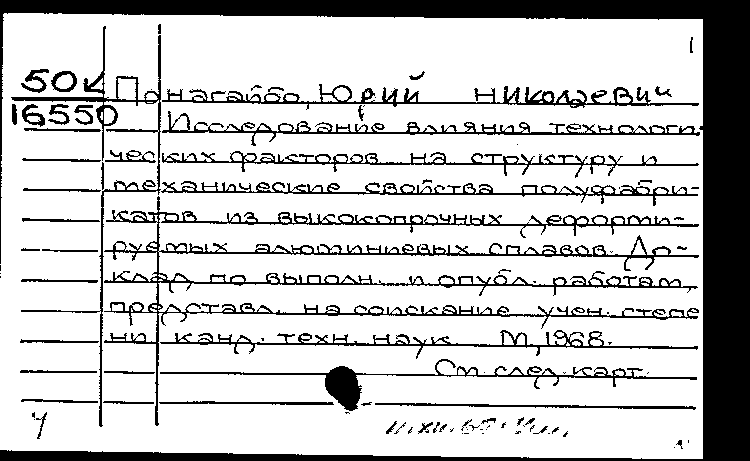 1
50к Понагайбо, Юрий Николаевич
16550
Исследование влияния технологи-
ческих факторов на структуру и
механические свойства полуфабри-
катов из высокопрочных деформи-
руемых алюминиевых сплавов. До-
клад по выполн. и опубл. работам,
представл. на соискание учен. степе
ни канд. техн. наук. М, 1968.
См. след. карт.